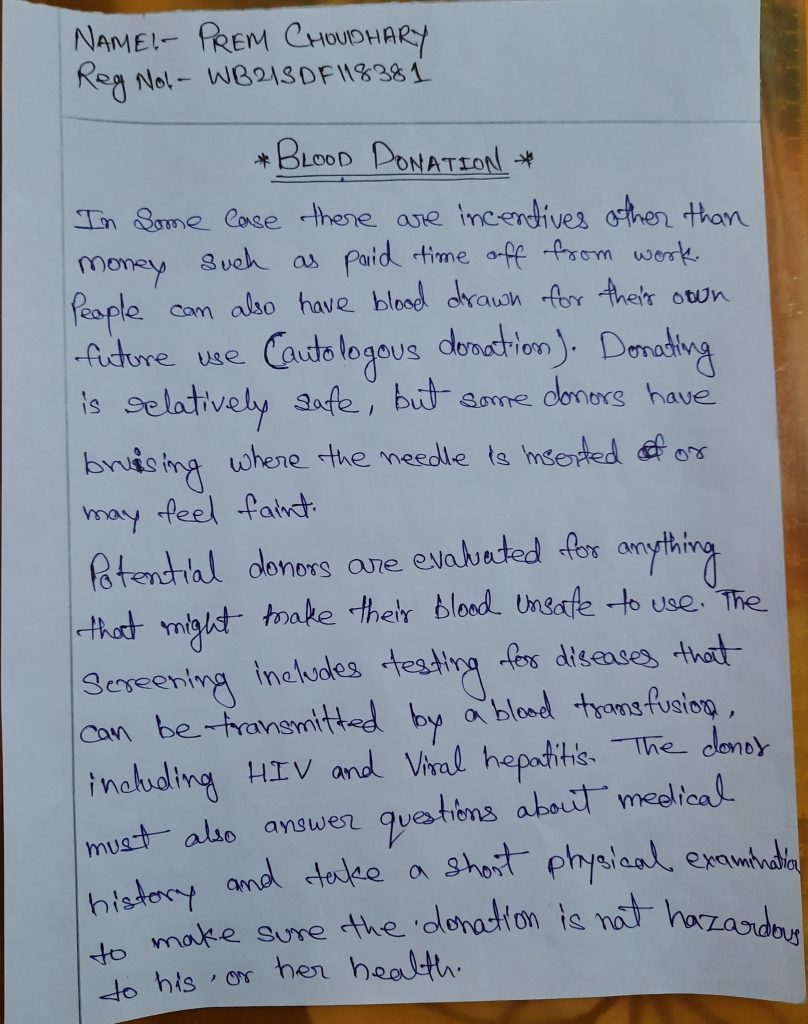 NAME:- PREM CHOUDHARY
Reg No:- WB21SDF118381
* BLOOD DONATION *
In Some Case there are incentives other than
money such as paid time off from work.
People can also have blood drawn for their own
future use (autologous donation). Donating
is relatively safe, but some donors have
bruising where the needle is inserted or
may feel faint.
Potential donors are evaluated for anything
that might make their blood unsafe to use. The
Screening includes testing for diseases that
can be transmitted by a blood transfusion,
including HIV and Viral hepatitis. The donor
must also answer questions about medical
history and take a short physical examinatio
to make sure the donation is not hazardous
to his or her health.